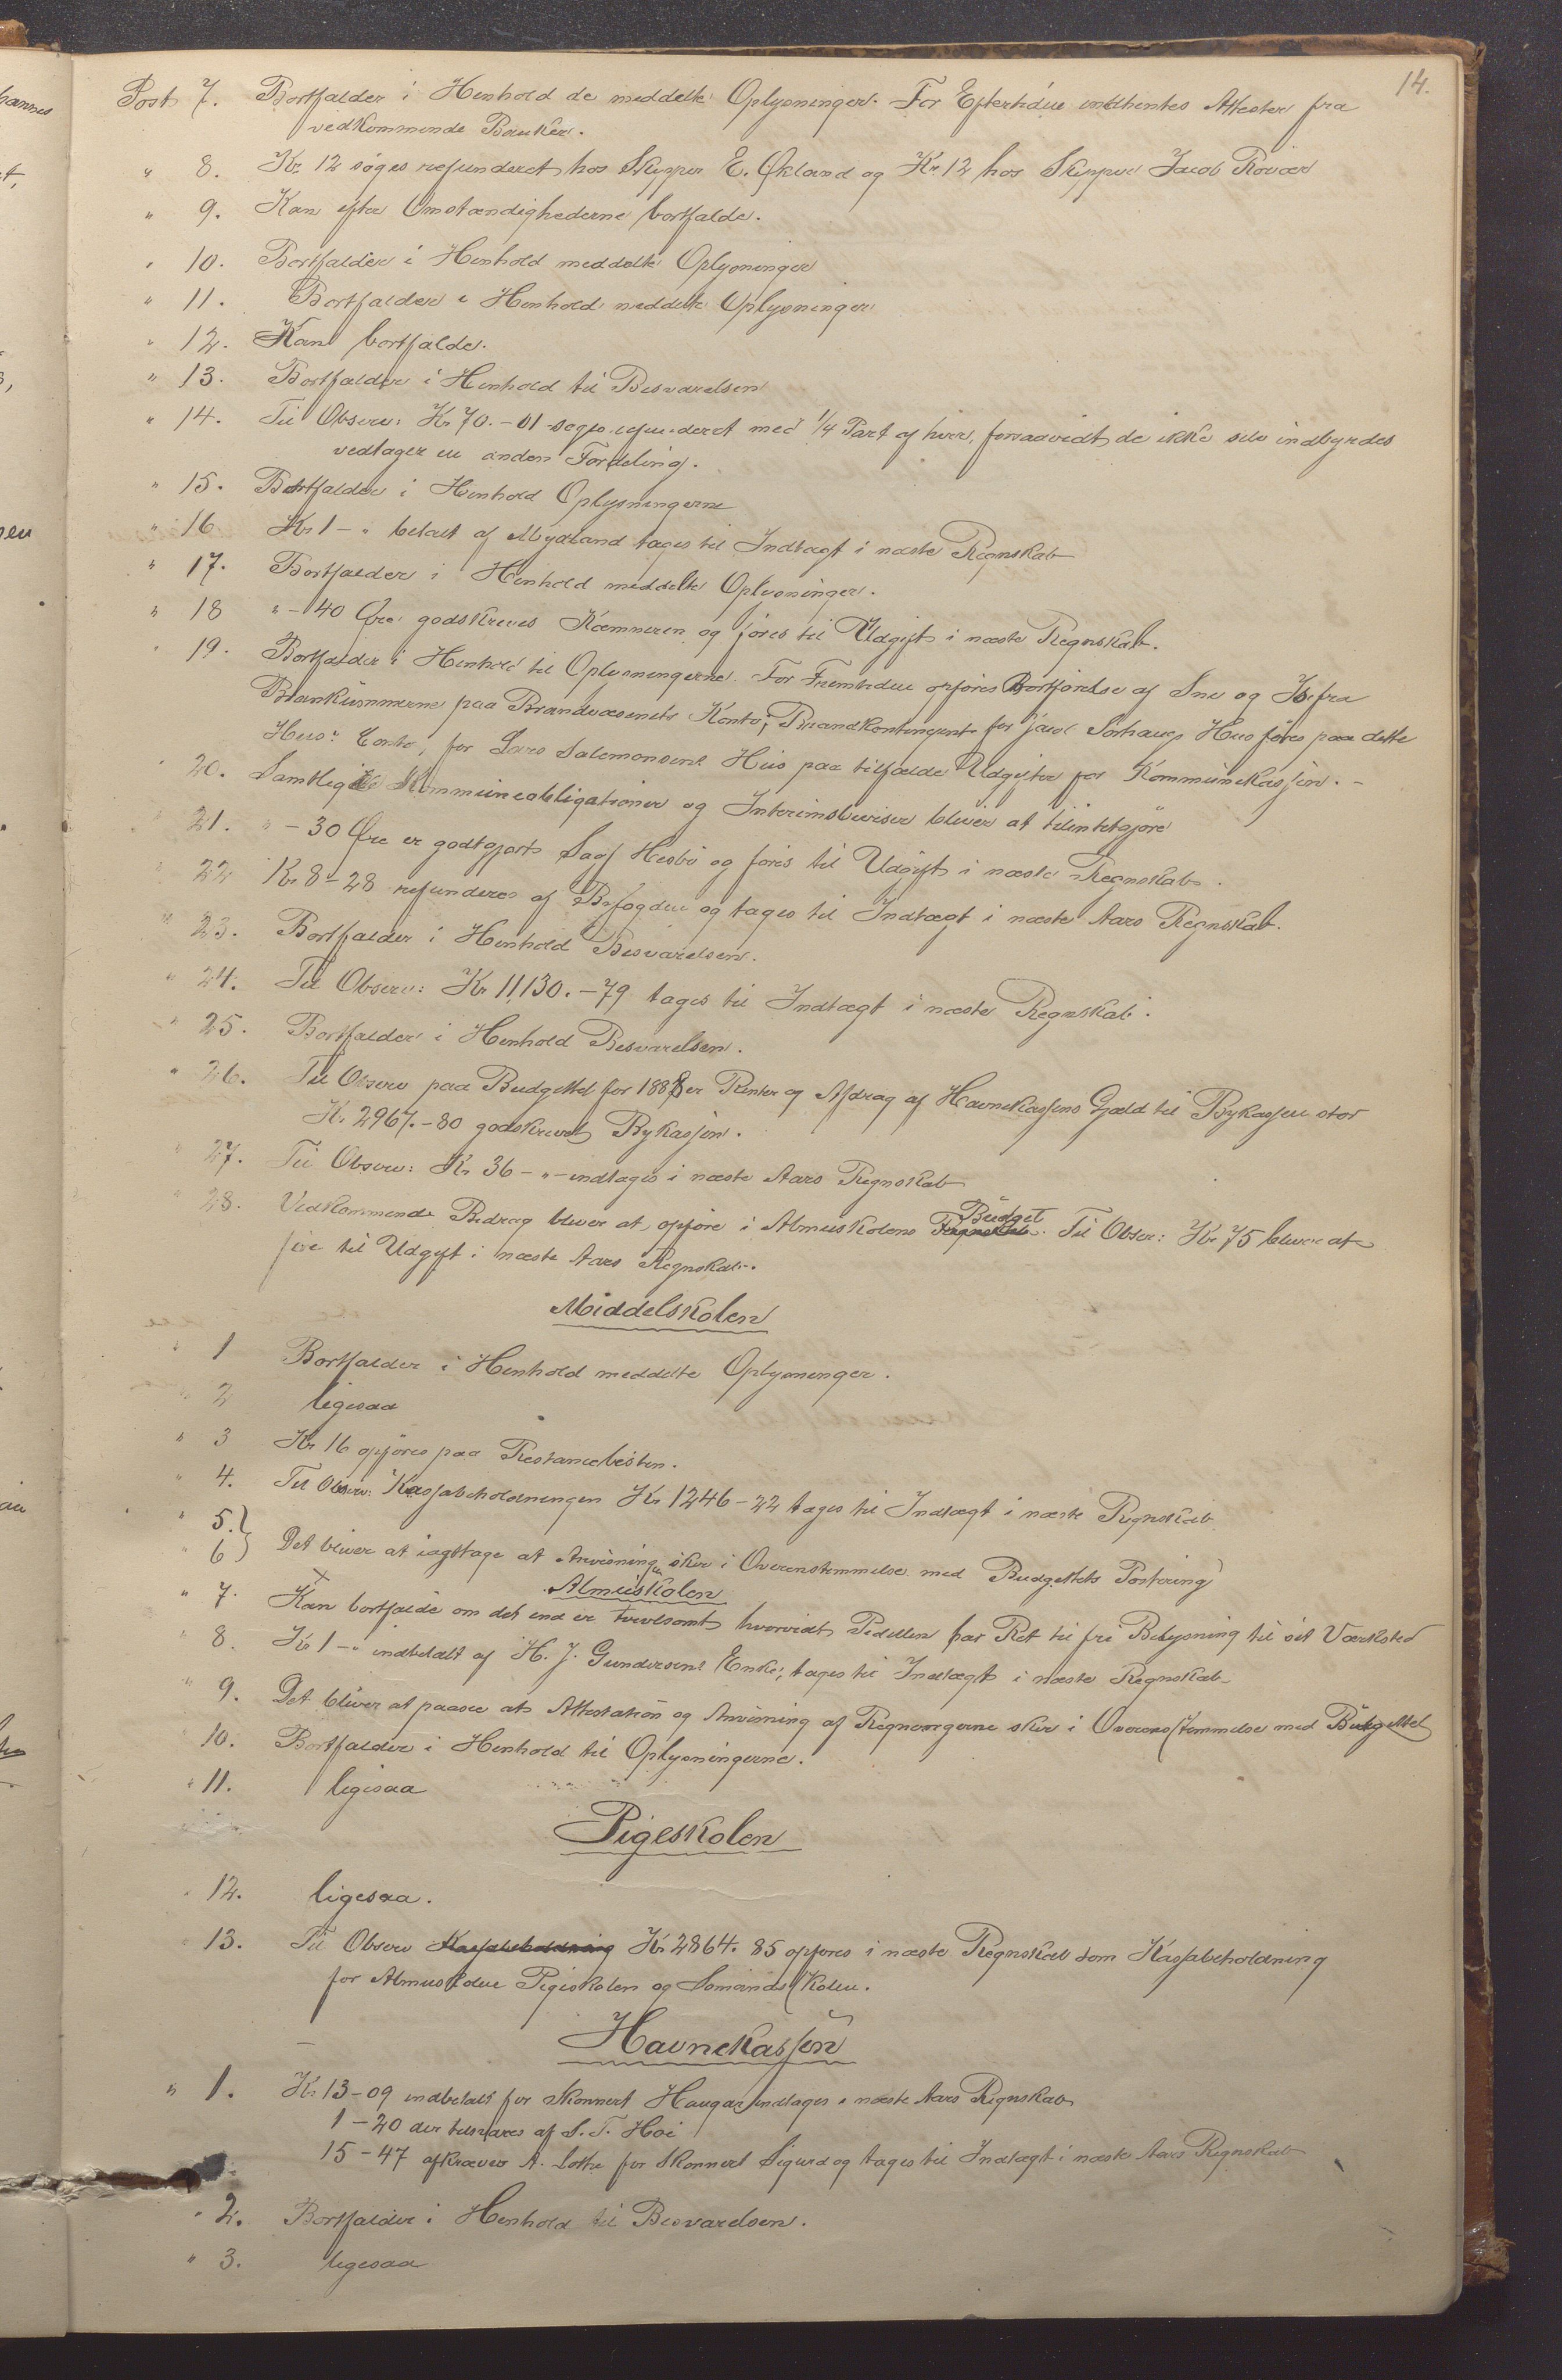 14.
Post 7. Bortfalder i Henhold de meddelte Oplysninger. For Eftertiden indhentes Attester fra
vedkommende Banker.
" 8. Kr. 12 søges refunderet hos Skipper E. Økland og Kr 12 hos Skipper Jacob Røvær
" 9. Kan efter Omstændighederne bortfalde.
" 10. Bortfalder i Henhold meddelte Oplysninger
" 11. Bortfalder i Henhold meddelte Oplysninger
" 12. Kan bortfalde.
" 13. Bortfalder i Henhold til Besvarelsen
" 14. Til Observ: Kr 70.-01 søges refunderet med 1/4 Part af hver, forsaavidt de ikke selv indbyrdes
vedtager en anden Fordeling.
" 15. Bortfalder i Henhold Oplysningerne
" 16 Kr 1-" betalt af Mydland tages til Indtægt i næste Regnskab
" 17. Bortfalder i Henhold meddelte Oplysninger.
" 18 "-40 Øre godskrives Kæmneren og føres til Udgift i næste Regnskab.
" 19. Bortfalder i Henhold til Oplysningerne. For Fremtiden opføres Bortførelse af Sne og Is fra
Brankummerne paa Brandvæsenets Konto; Brandkontingent for Jacob Sørhaugs Hus føres paa dette
Hus' Conto, for Lars Salemonsens Hus paa tilfældige Udgifter for Kommunekassen. -
" 20. Samtlige Kommuneobligationer og Interimsbeviser bliver at tilintetgjøre
" 21. "-30 Øre er godtgjort Sagf Hesbö og føres til Udgift i næste Regnskab.
" 22 Kr 8-28 refunderes af Byfogden og tages til Indtægt i næste Aars Regnskab.
" 23. Bortfalder i Henhold Besvarelsen.
" 24. Til Observ: Kr 11,130.-79 tages til Indtægt i næste Regnskab.
" 25. Bortfalder i Henhold Besvarelsen.
" 26. Til Observ paa Budgettet for 1888 er Renter og Afdrag af Havnekassens Gjæld til Bykassen stor
Kr. 2967.-80 godskrevet Bykassen.
" 27. Til Observ: Kr 36-"-indtages i næste Aars Regnskab
" 28. Vedkommende Bidrag bliver at opføre i Almuskolens Regnskab Budget. Til Observ: Kr 75 bliver at
føre til Udgift i næste Aars Regnskab.
Middelskolen
" 1 Bortfalder i Henhold meddelte Oplysninger.
" 2 ligesaa
" 3 Kr 16 opføres paa Restancelisten.
" 4. Til Observ: Kassabeholdningen Kr 1246-22 tages til Indtægt i næste Regnskab
" 5.}
" 6} Det bliver at iagttage at Anvisningen sker i Overensstemmelse med Budgettets Postering
Almuskolen
" 7. Kan bortfalde om det end er tvivlsomt hvorvidt Pedellen har Ret til fri Belysning til sit Værksted
" 8. Kr 1-" indbetalt af H. J. Gundersens Enke, tages til Indtægt i næste Regnskab
" 9. Det bliver at paase at Attestation og Anvisning af Regningerne sker i Overensstemmelse med Budgettet
" 10. Bortfalder i Henhold til Oplysningerne.
" 11. ligesaa
Pigeskolen
" 12. ligesaa.
" 13. Til Observ Kassabeholdning Kr 2864.85 opføres i næste Regnskab som Kassabeholdning
for Almuskolen Pigeskolen og Sømandsskolen.
Havnekassen
" 1. Kr 13-09 indbetalt for Skonnert Haugar indtages i næste Aars Regnskab
1-20 der tilsvares af S. T. Hoi
15-47 afkræves A. Lothe for Skonnert Sigurd og tages til Indtægt i næste Aars Regnskab
" 2. Bortfalder i Henhold til Besvarelsen.
" 3. ligesaa